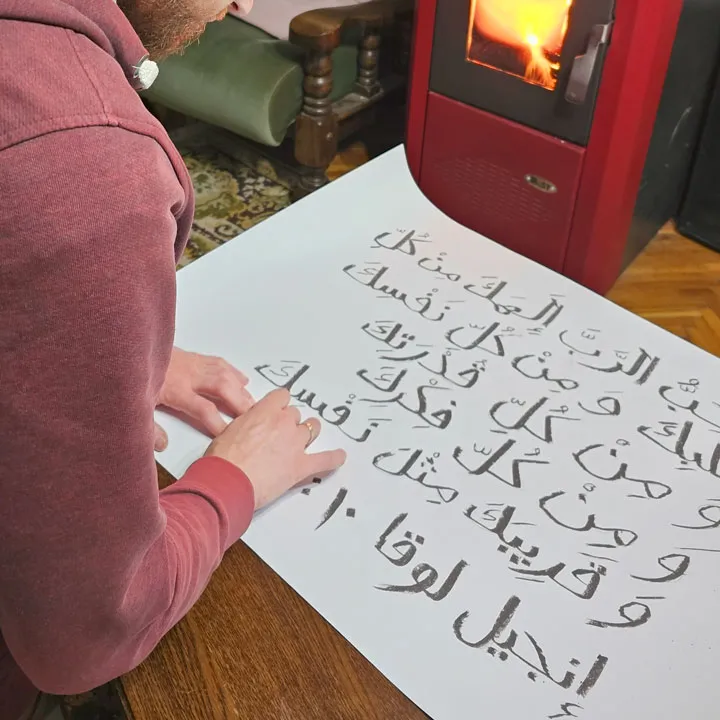 الرَّبَّ إِلَهَكَ مِنْ كُلِّ
وَ مِنْ كُلِّ نَفْسِكَ
وَ مِنْ كُلِّ قُدْرَتِكَ
وَ مِنْ كُلِّ فِكْرِكَ
وَ قَرِيبَكَ مِثْلَ نَفْسِكَ
إنجيل لوقا ١٠ :